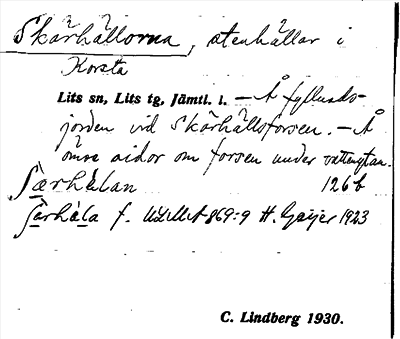 Skärhällorna, stenhällar i
Korsta
Lits sn, Lits tg, Jämtl. l. – Å fyllnads-
jorden vid Skärhällsforsen. – Å
ömse sidor om forsen under vattenytan.
126 b
f. ULMA 869:9 H. Geijer 1923
C. Lindberg 1930.